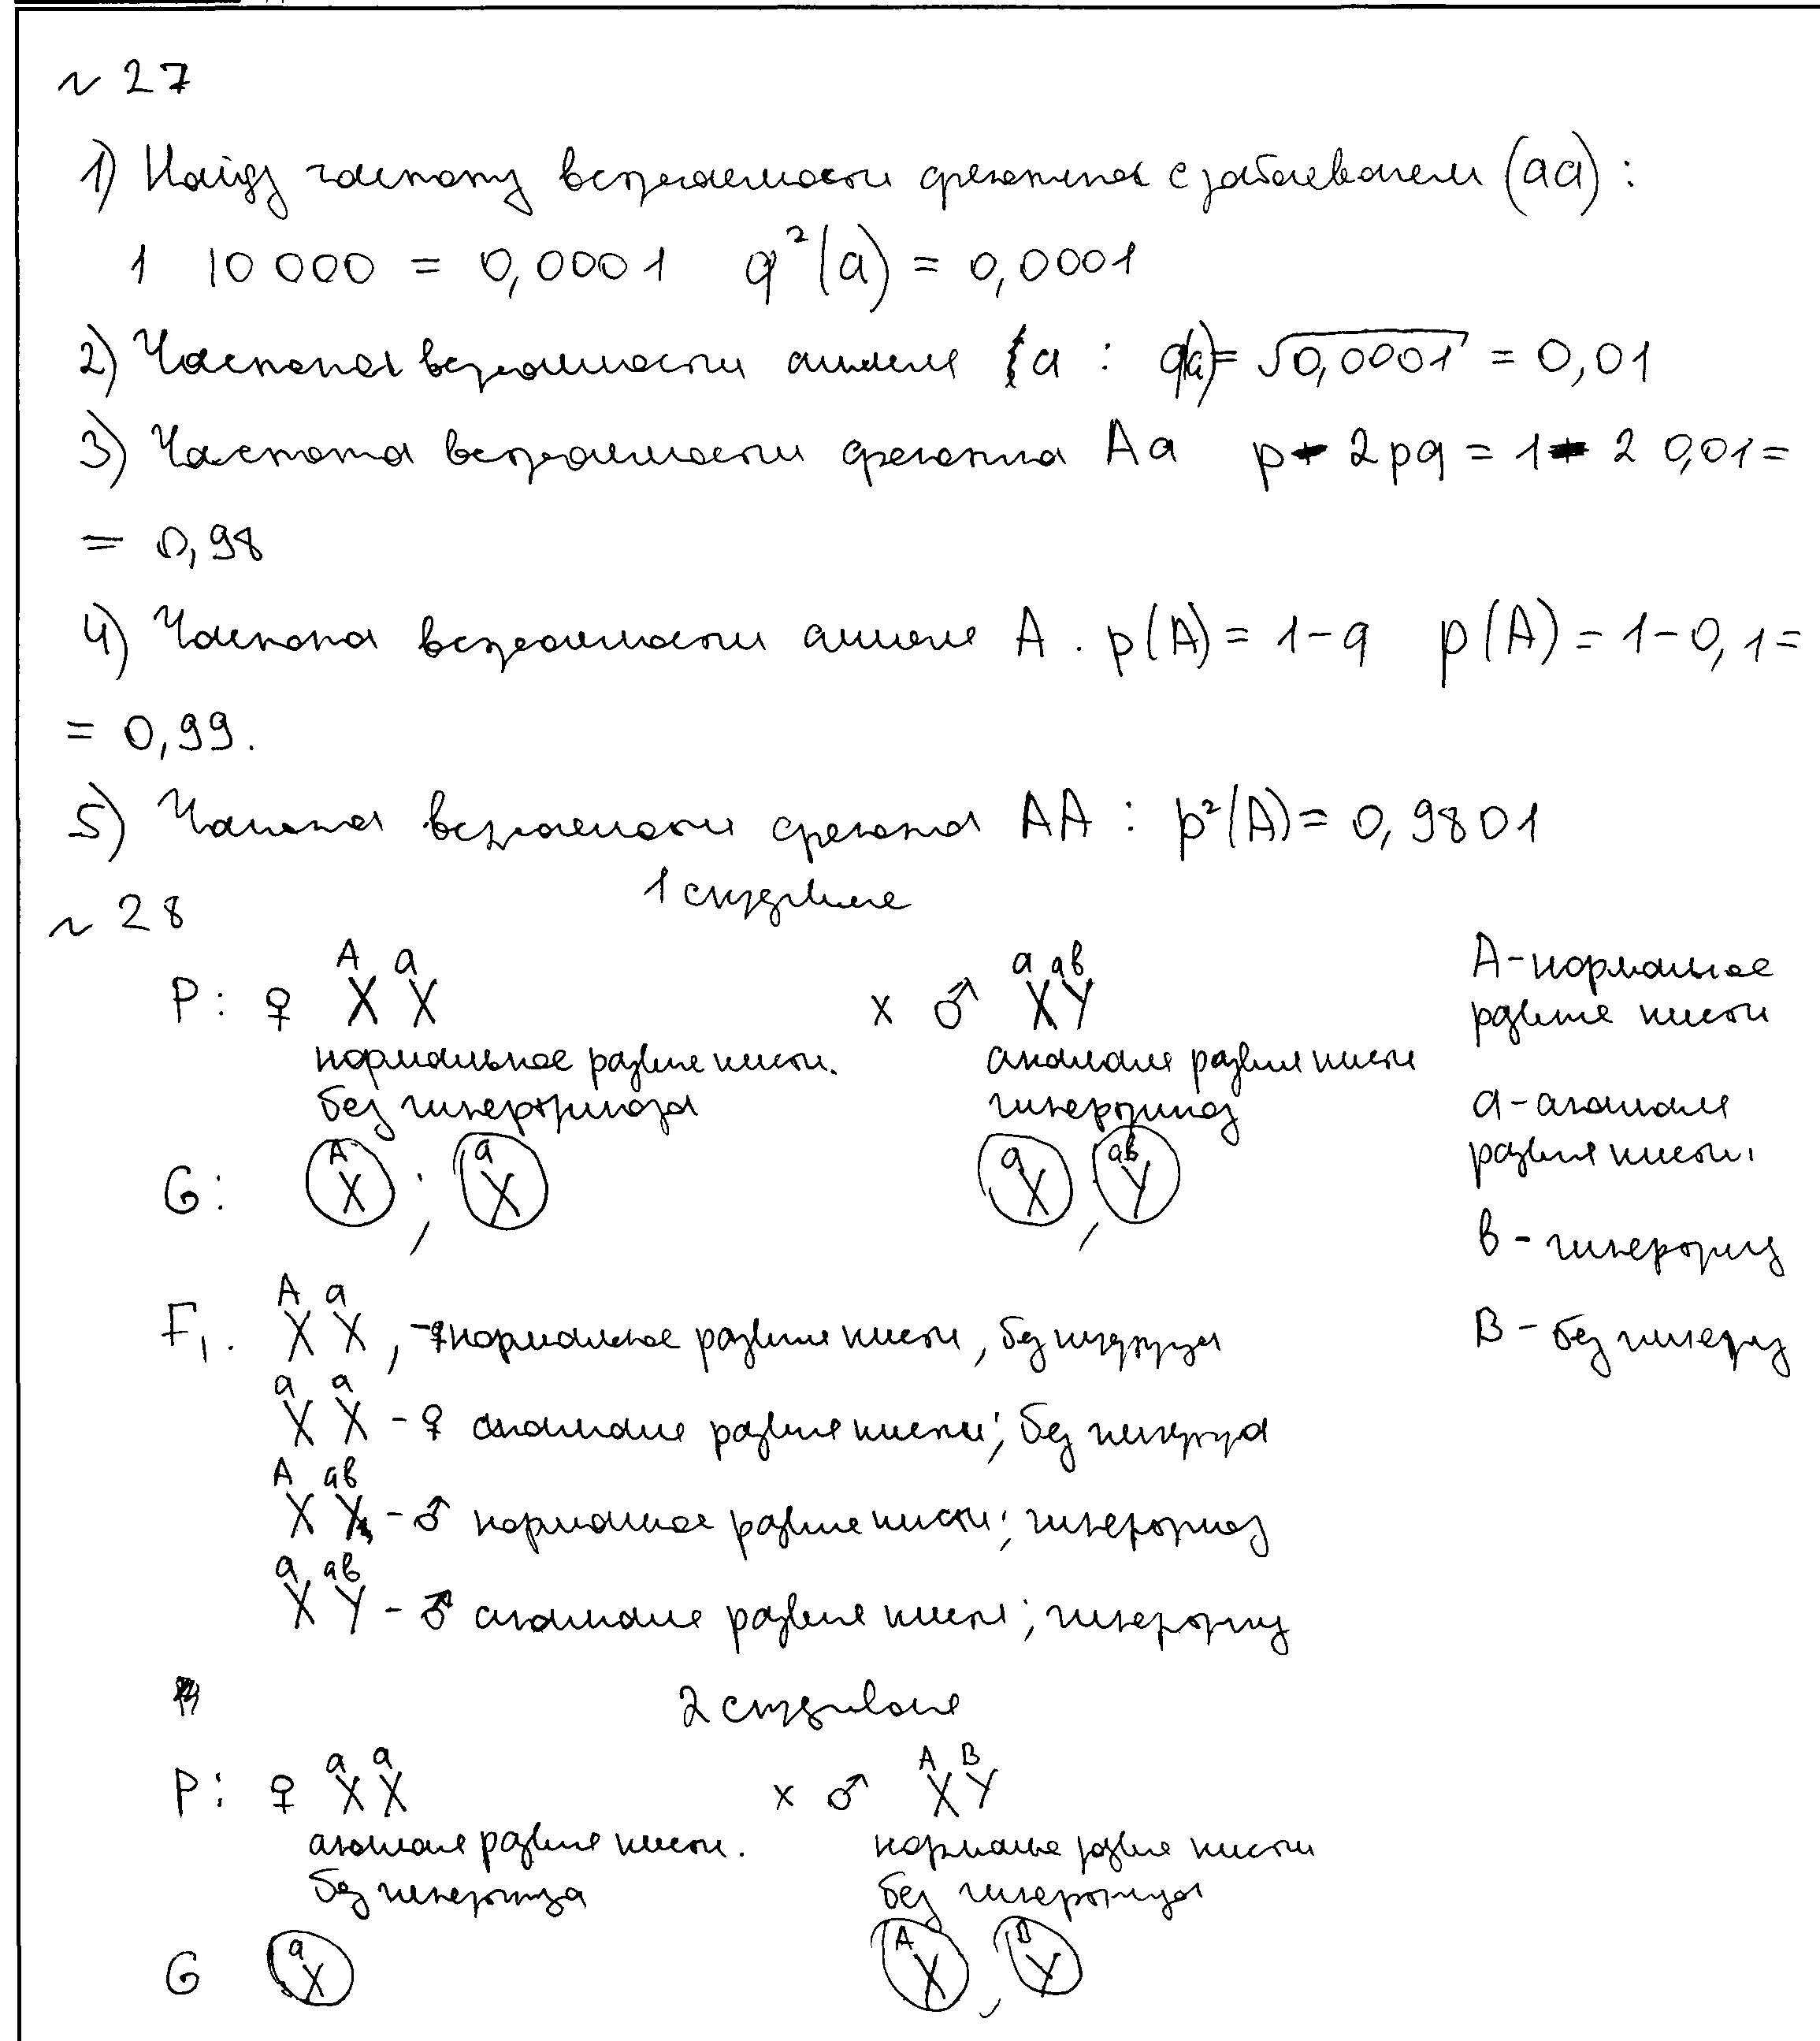 ~ 27
1) Найду частоту встречаемости фенотипа с заболеванем (aa) :
1 10 000 = 0,0001 q²(a) = 0,0001
2) Частота встречаемости аллеля a : q(a)= √0,0001 = 0,01
3) Частота встречаемости фенотипа Aa p 2pq = 1 2 0,01 =
= 0,98
4) Частота встречаемости аллеля A . p(A) = 1-q p(A) = 1-0,1 =
= 0,99.
5) Частота встречаемости фенотипа AA : p²(A) = 0,9801
~ 28
1 скрещивание
P: ♀ Xᴬ Xᵃ x ♂ Xᵃ Yᵃᵇ
нормальное развитие кисти. аномалия развития кисти
без гипертрихоза гипертрихоз
G: Xᴬ ; Xᵃ Xᵃ , Yᵃᵇ
F₁. Xᴬ Xᵃ, -♀ нормальное развитие кисти, без гипертрихоза
Xᵃ Xᵃ - ♀ аномалия развития кисти; без гипертрихоза
Xᴬ Yᵃᵇ - ♂ нормальное развитие кисти; гипертрихоз
Xᵃ Yᵃᵇ - ♂ аномалия развития кисти; гипертрихоз
A - нормальное
развитие кисти
a - аномалия
развития кисти.
b - гипертрихоз
B - без гипертрихоза
2 скрещивание
P: ♀ Xᵃ Xᵃ x ♂ Xᴬ Yᴮ
аномалия развития кисти. нормальное развитие кисти
без гипертрихоза без гипертрихоза
G Xᵃ Xᴬ , Yᴮ